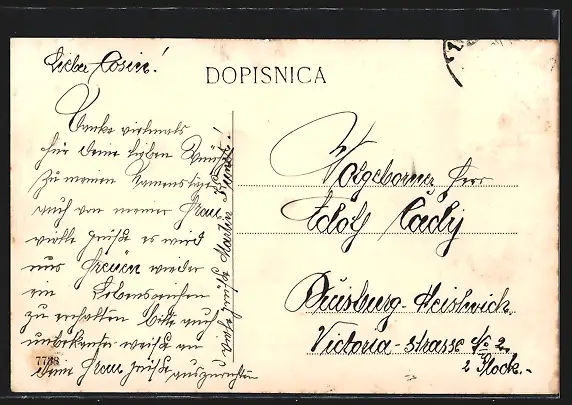 Lieber Cosin!
DOPISNICA
Danke vielmals
für deine lieben Wünsche
zu meinen Namenstage
auch von meiner Frau
vielle grüße es wird
uns freuen wieder
ein Lebenszeichen
zu erhalten bitte auch
unbekanter weise an
deine Frau grüße auszurichten
grüße Martin
Wolgeborner Herr
Adolf Cady
Duisburg-Meiderich
Victoria-strasse No 2
2 Stock.-
7788